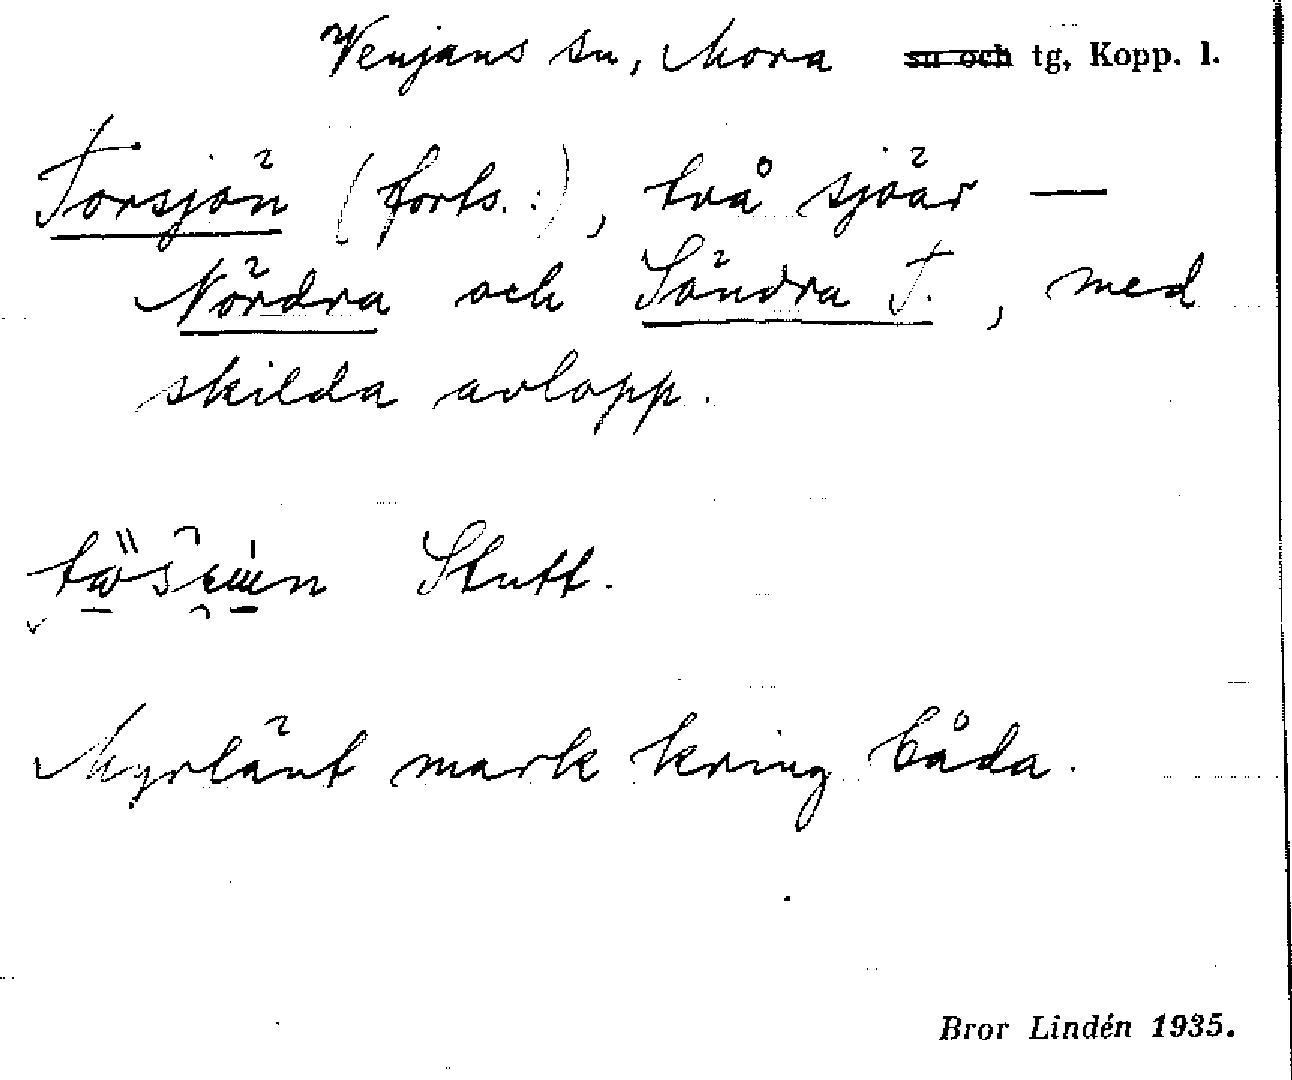 Venjans sn, Mora sn och tg, Kopp. l.
Torsjön (forts.:), två sjöar —
Nördra och Söndra T., med
skilda avlopp.
Stutt.
Myrlänt mark kring båda.
Bror Lindén 1935.